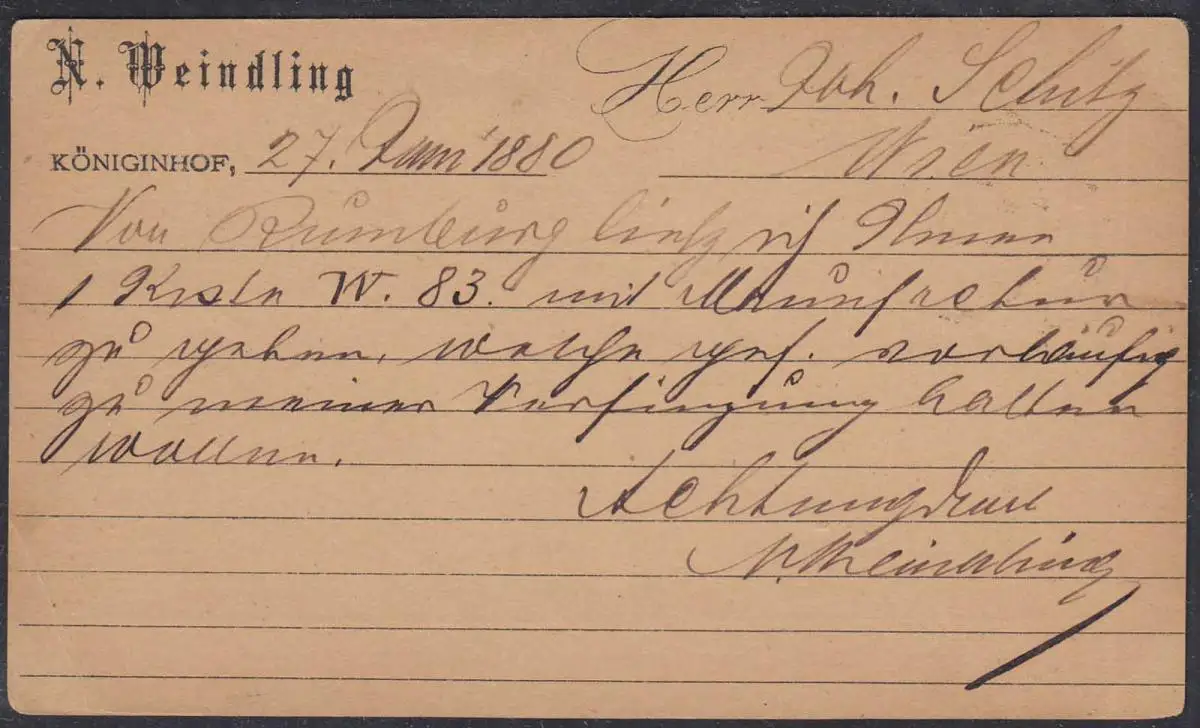 N. Weindling
Herr Joh. Schütz
KÖNIGINHOF, 27. Juni 1880
Wien
Von Rumburg ließ ich Ihnen
1 Kiste W. 83. mit Manufactur
zu gehen, welche gef. vorläufig
zu meiner Verfügung halten
wollen.
Achtungsvoll
N. Weindling